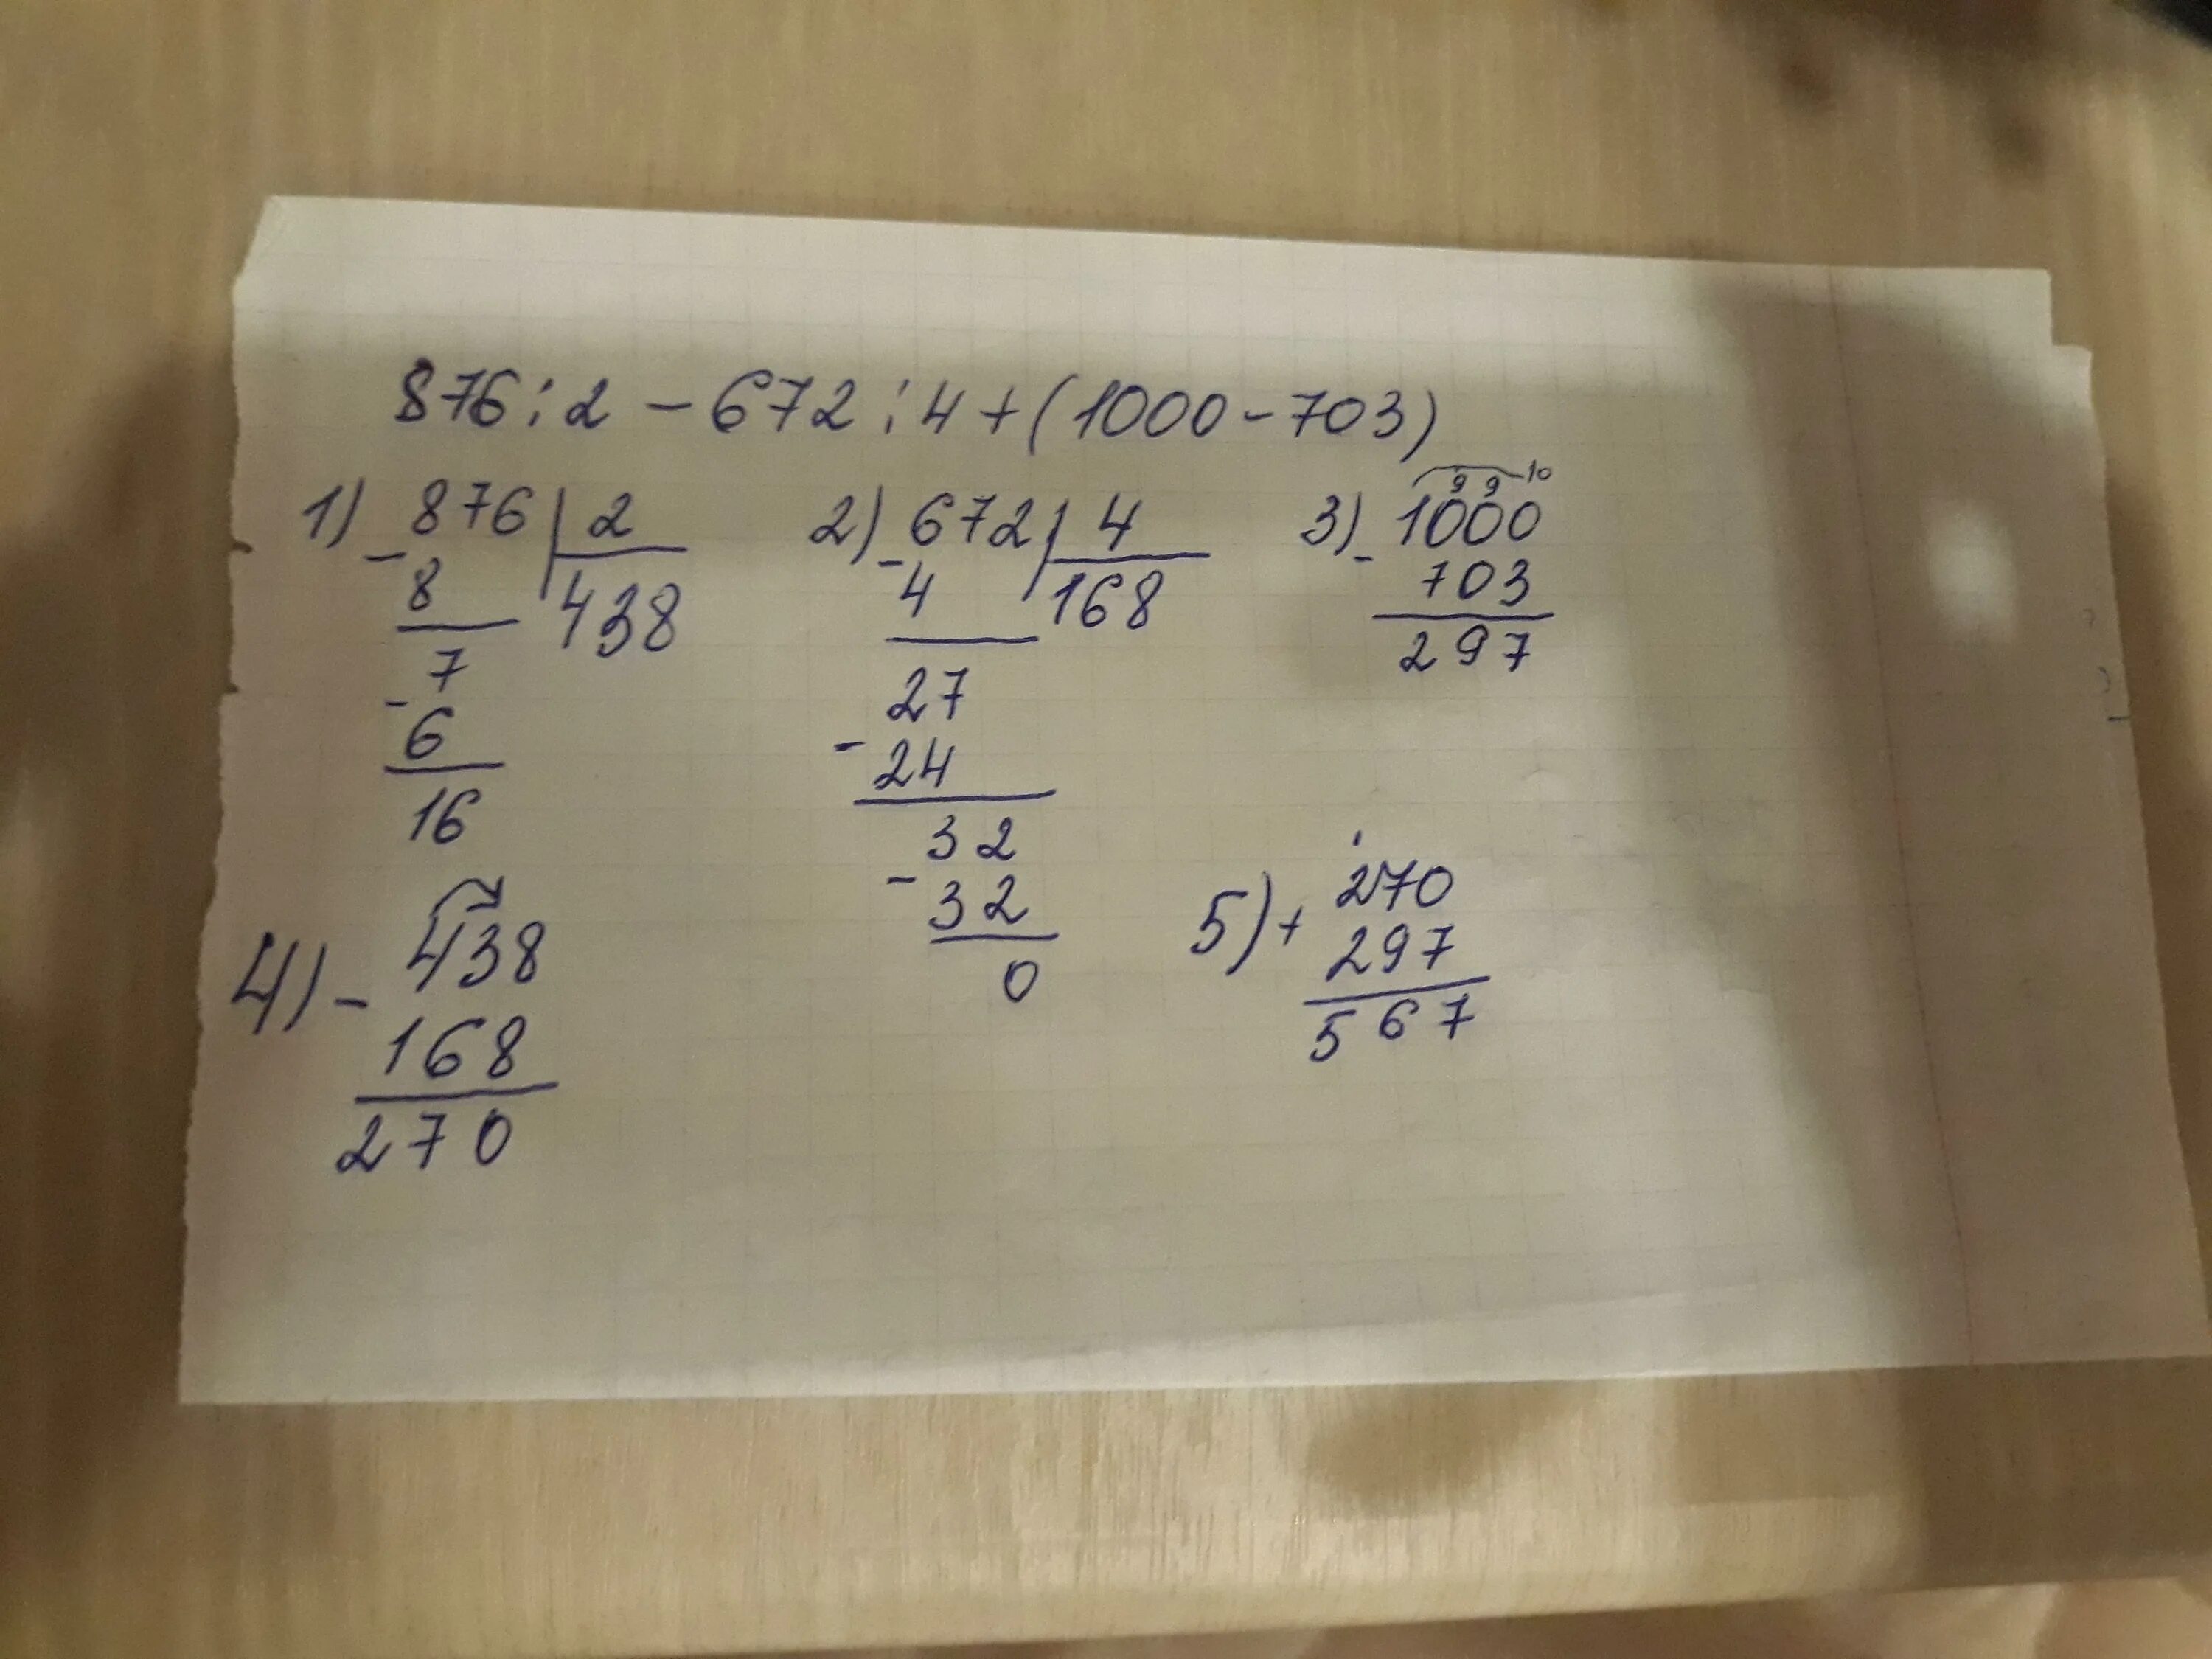 876:2-672:4+(1000-703)
1) - 876 | 2
8 438
7
- 6
16
2) - 672 | 4
4 168
27
- 24
32
- 32
0
9 9 10
3) - 1000
703
297
4) - 438
168
270
5) + 270
297
567